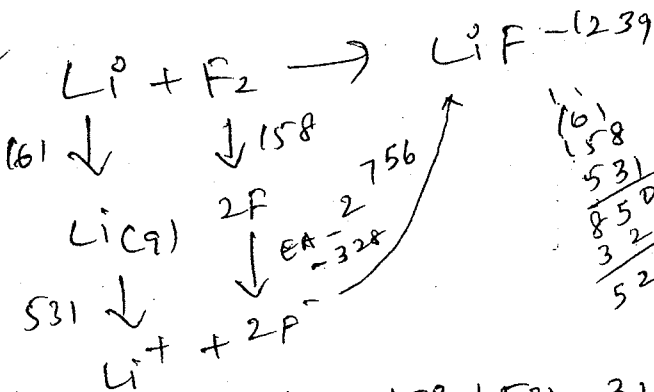 Li + F2 → LiF -1239
161 ↓ ↓ 158
Li(g) 2F
756
EA -2
-328
531 ↓ ↓
Li+ + 2F-
161
158
531
850
32
52